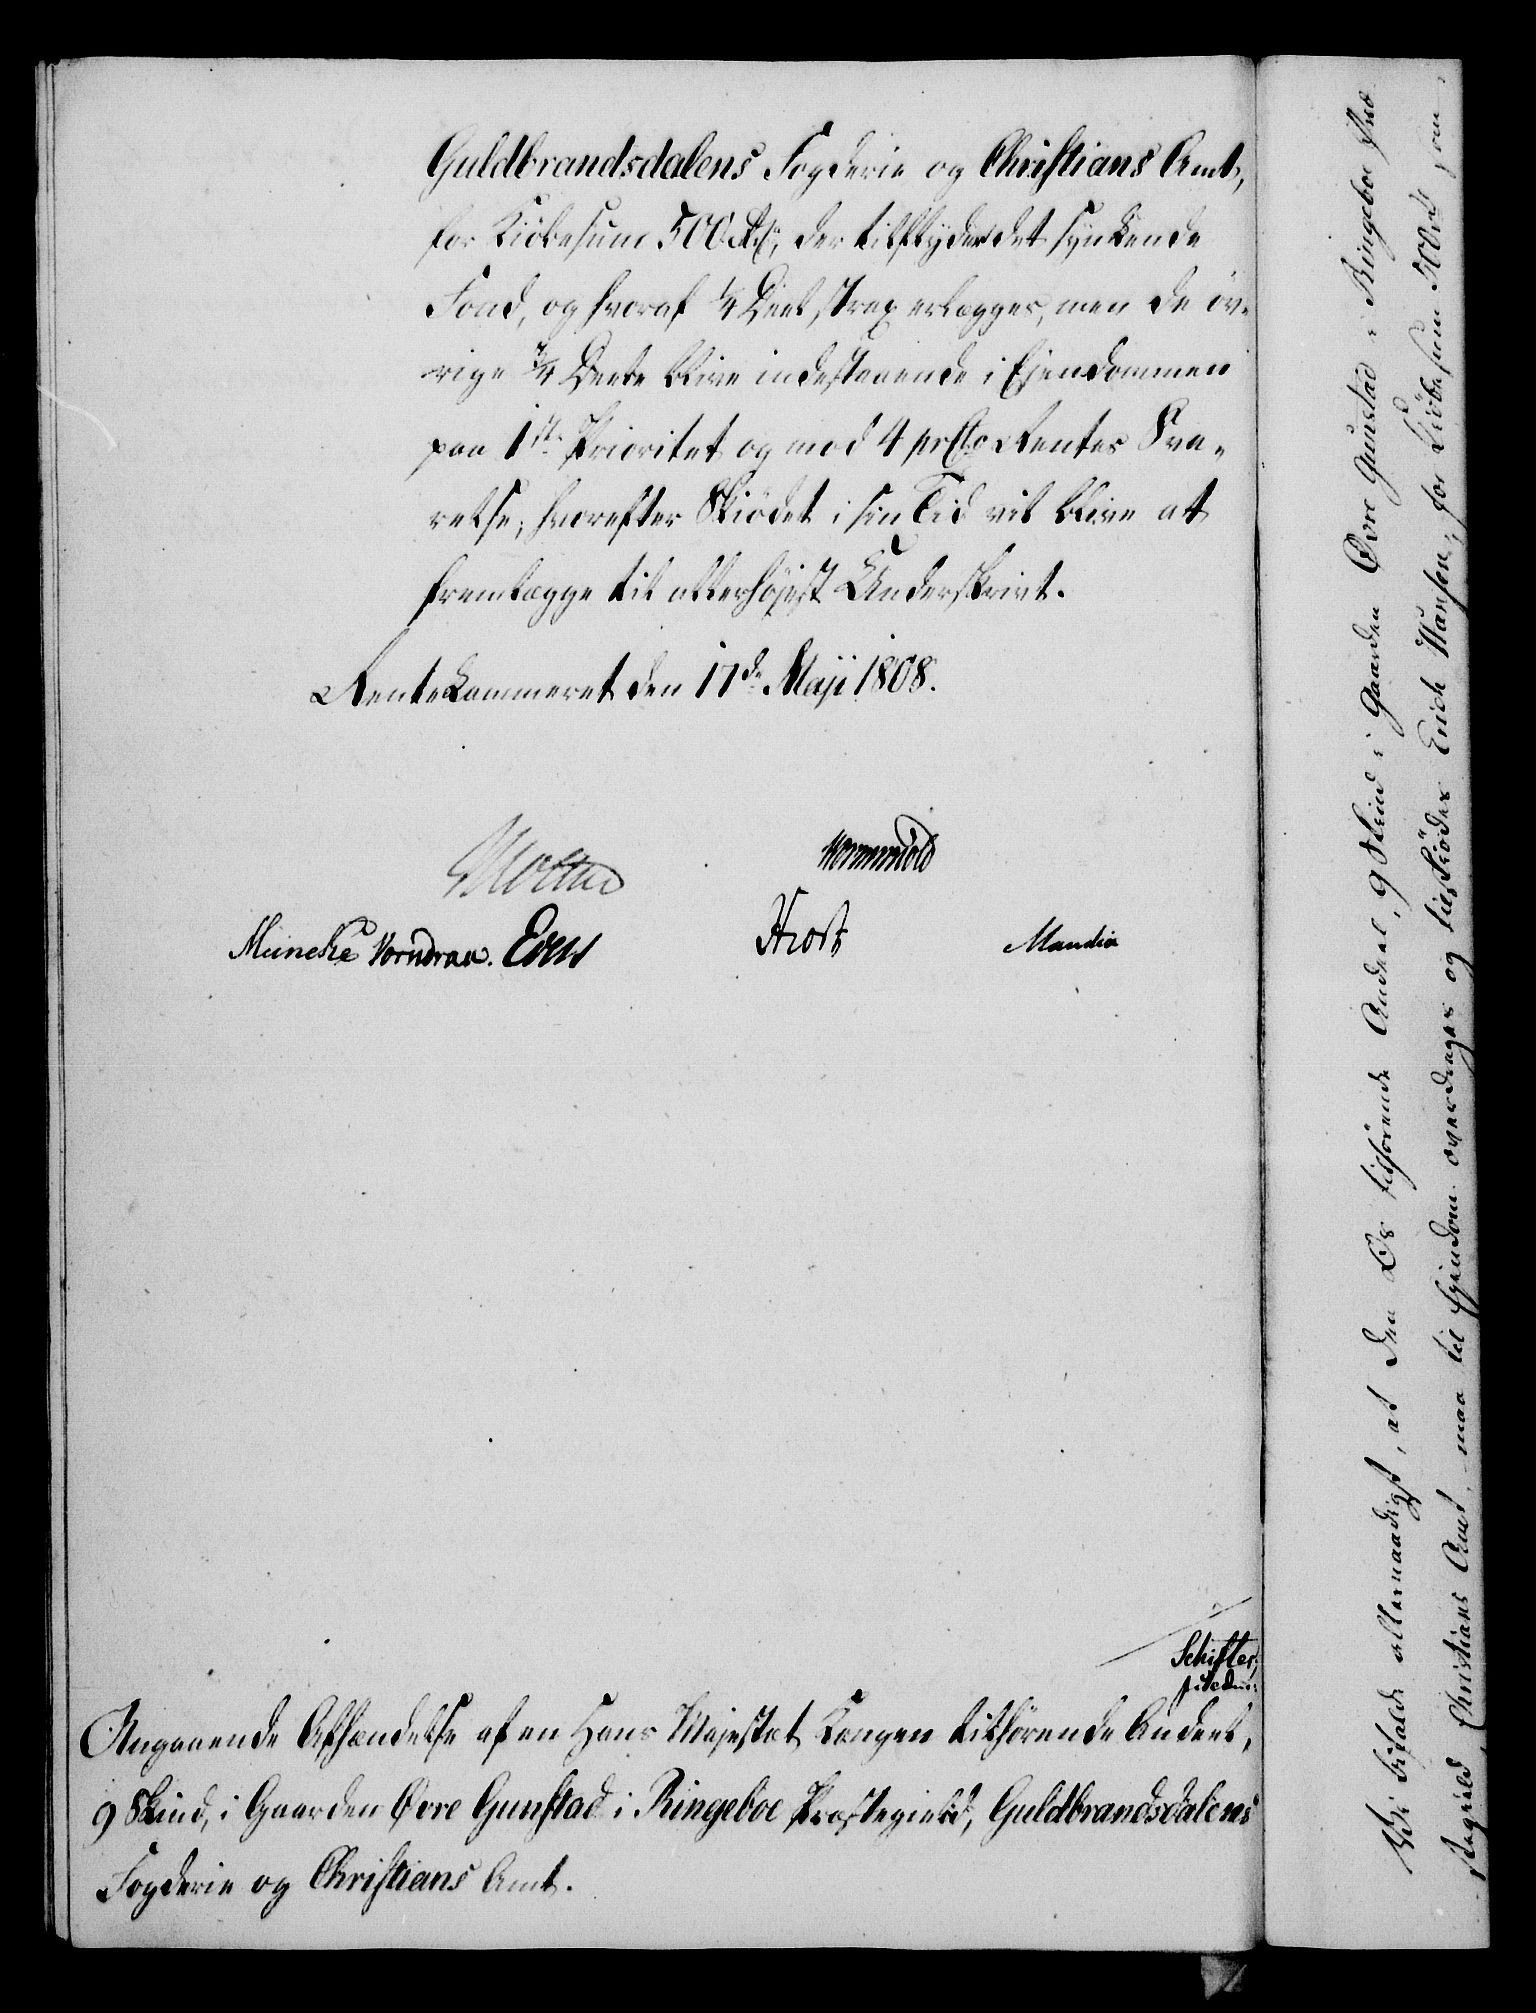 Guldbrandsdalens Fogderie og Christians Amt,
for Kiöbesum 500 Rd., der tilflyder det synkende
Fond, og hvoraf 1/4 Deel strax erlægges, men de öv-
rige 3/4 Deele blive indestaaende i Ejendommen
paa 1ste Prioritet og mod 4 prCto Rentes Sva-
relse; hvorefter Skiödet i sin Tid vil blive at
fremlægge til allerhöjest Underskrivt.
Rentekammeret den 17de Maji 1808.
Moltke
Wormskiold
Meincke Vorndran. Evers Hiort Mandix
Schifter,
Angaaende Afhændelse af en Hans Majestæt Kongen tilhörende Andeel,
9 Skind, i Gaarden Øvre Gunstad i Ringeboe Præstegield, Guldbrandsdalens
Fogderie og Christians Amt.
Vi bifalde allernaadigst, at den Os tilhörende Andeel, 9 Skind i Gaarden Øvre Gunstad i Ringeboe Præ-
stegield, Christians Amt, maa til Ejendom overdrages og tilskiödes Erich Hansen, for Kiöbesum 500 Rd, som